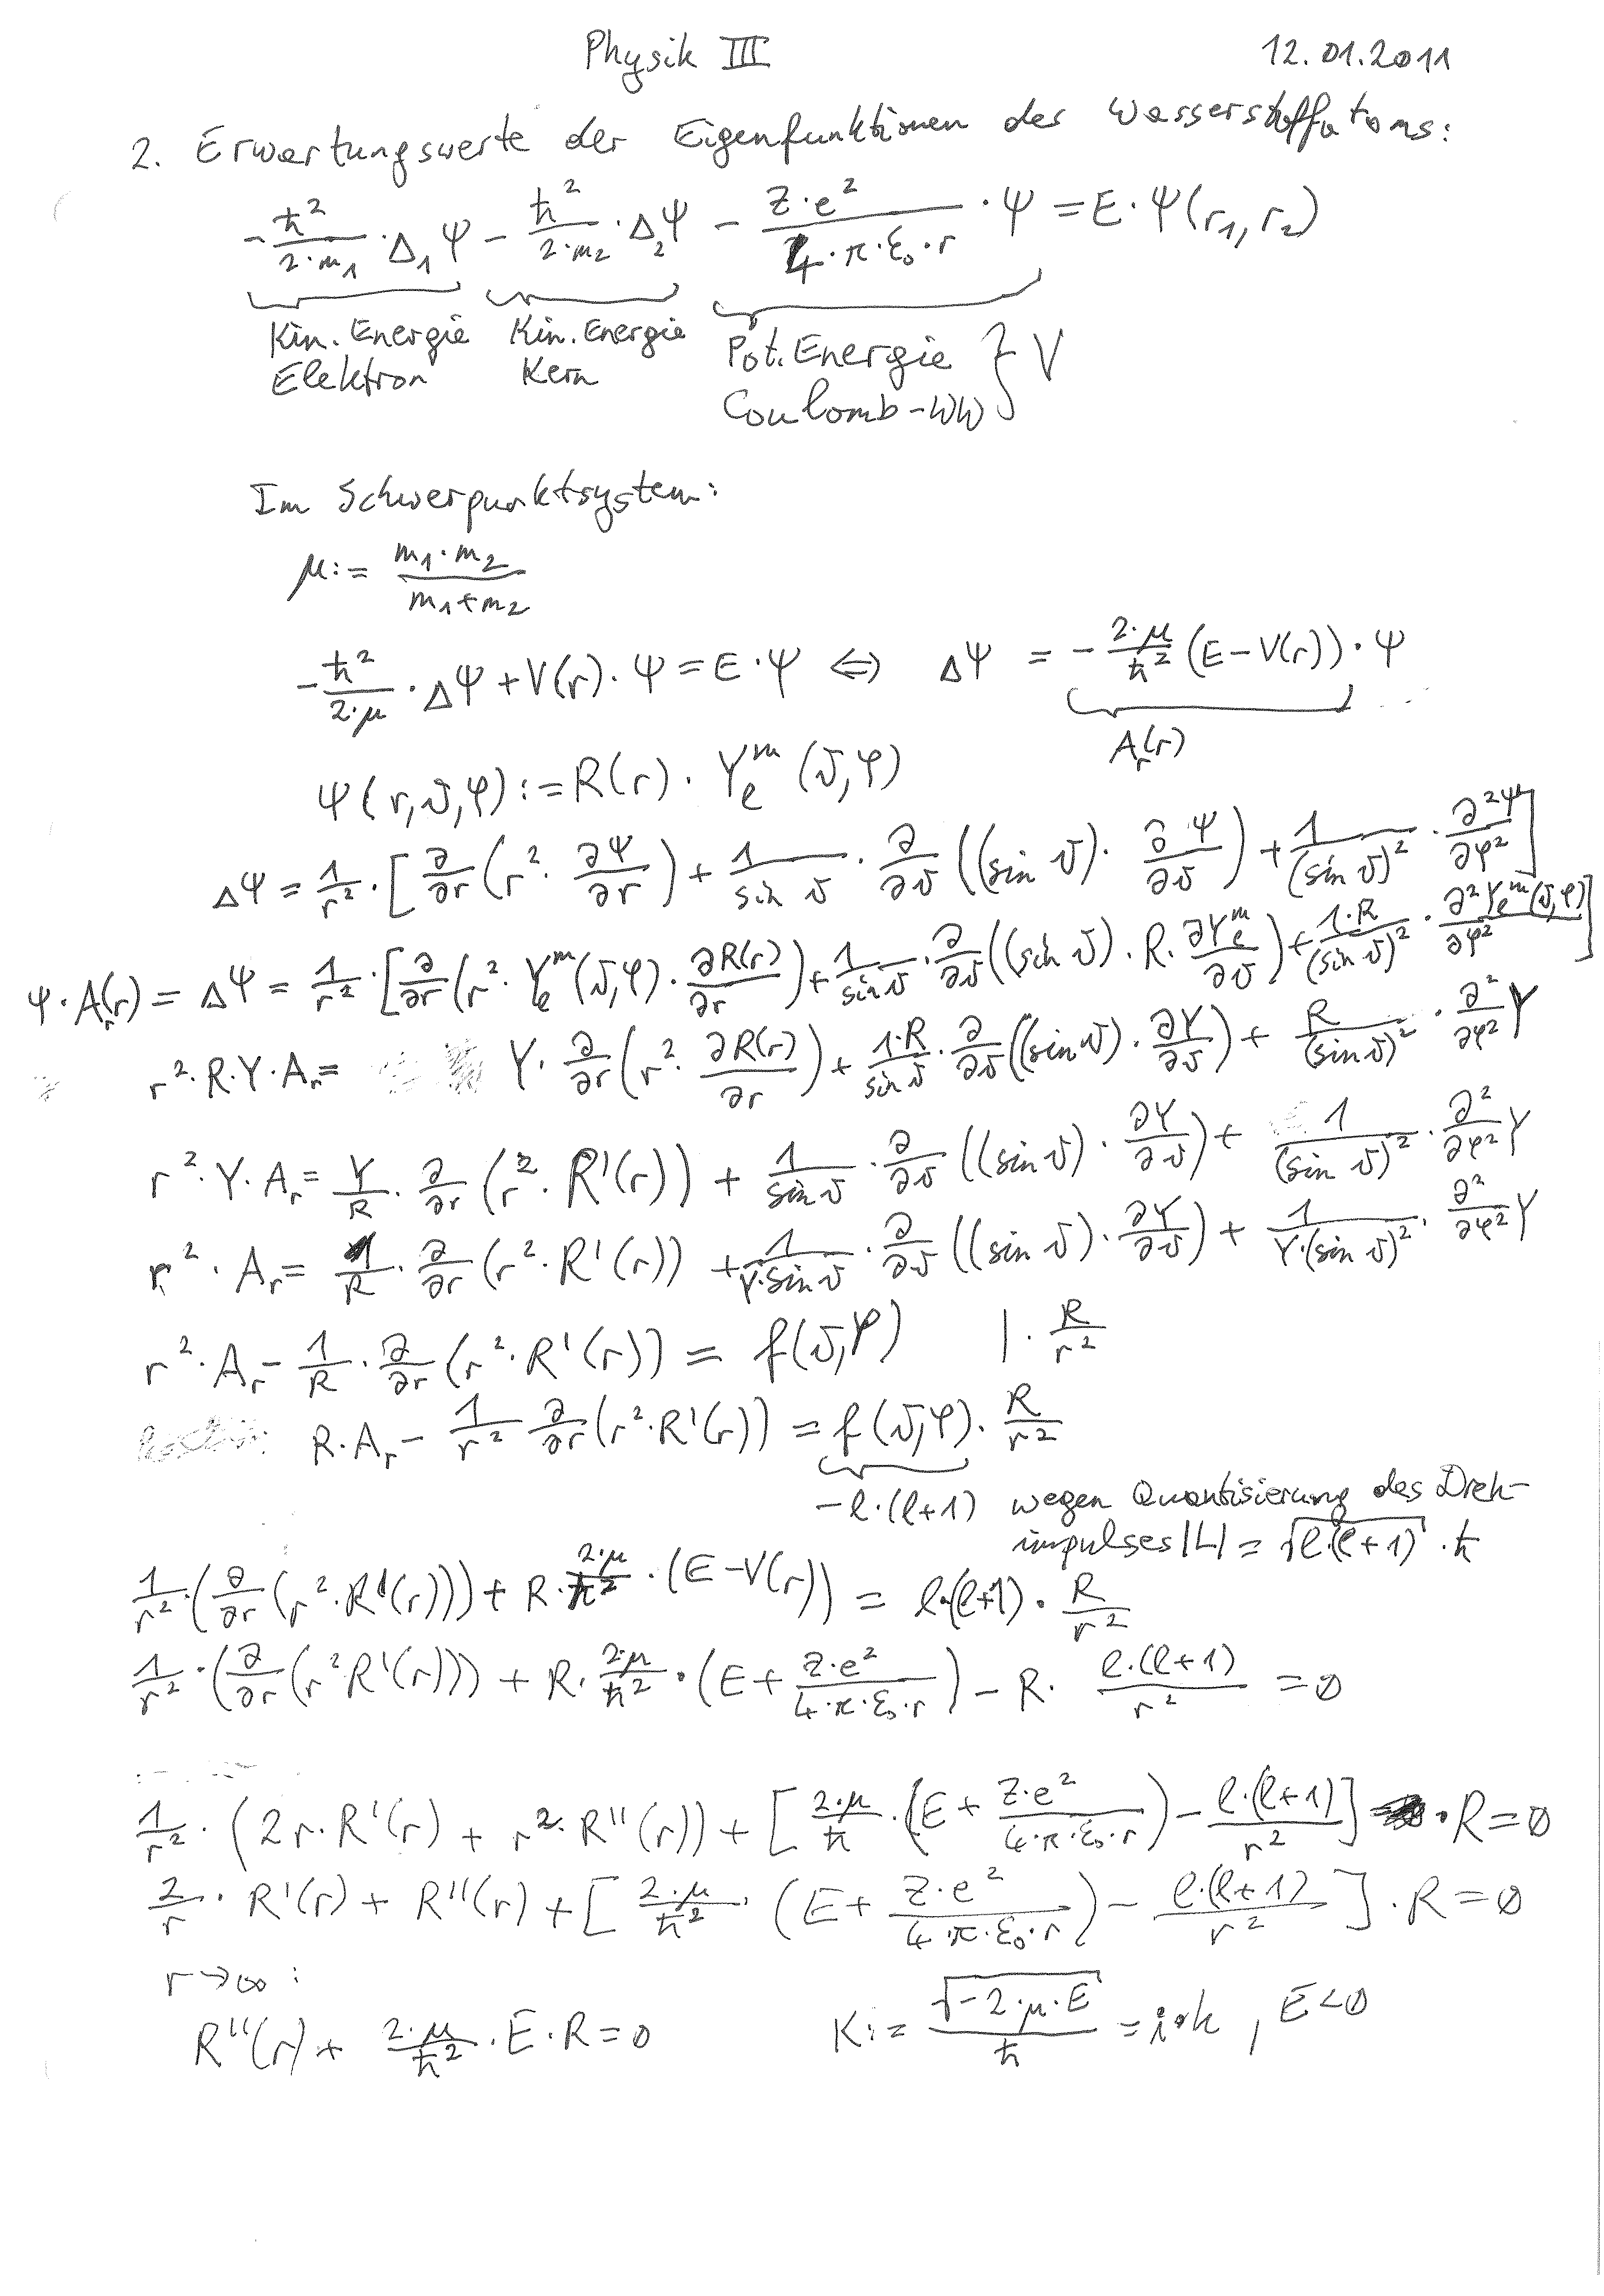 Physik III 12.01.2011
2. Erwartungswerte der Eigenfunktionen des Wasserstoffatoms:
-ħ²/(2·m₁)·Δ₁Ψ - ħ²/(2·m₂)·Δ₂Ψ - Z·e²/(4·π·ε₀·r)·Ψ = E·Ψ(r₁,r₂)
Kin. Energie Kin. Energie Pot. Energie } V
Elektron Kern Coulomb-WW
Im Schwerpunktsystem:
μ := (m₁·m₂)/(m₁+m₂)
-ħ²/(2·μ)·ΔΨ + V(r)·Ψ = E·Ψ ⇔ ΔΨ = -2·μ/ħ² (E-V(r))·Ψ
Aᵣ(r)
Ψ(r,ϑ,φ) := R(r)·Yₗᵐ(ϑ,φ)
ΔΨ = 1/r²·[∂/∂r(r²·∂Ψ/∂r) + 1/(sin ϑ)·∂/∂ϑ((sin ϑ)·∂Ψ/∂ϑ) + 1/(sin ϑ)²·∂²Ψ/∂φ²]
Ψ·Aᵣ(r) = ΔΨ = 1/r²·[∂/∂r(r²·Yₗᵐ(ϑ,φ)·∂R(r)/∂r) + 1/(sin ϑ)·∂/∂ϑ((sin ϑ)·R·∂Yₗᵐ/∂ϑ) + 1·R/(sin ϑ)²·∂²Yₗᵐ(ϑ,φ)/∂φ²]
r²·R·Y·Aᵣ = Y·∂/∂r(r²·∂R(r)/∂r) + 1·R/(sin ϑ)·∂/∂ϑ((sin ϑ)·∂Y/∂ϑ) + R/(sin ϑ)²·∂²/∂φ² Y
r²·Y·Aᵣ = Y/R·∂/∂r(r²·R'(r)) + 1/(sin ϑ)·∂/∂ϑ((sin ϑ)·∂Y/∂ϑ) + 1/(sin ϑ)²·∂²/∂φ² Y
r²·Aᵣ = 1/R·∂/∂r(r²·R'(r)) + 1/(Y·sin ϑ)·∂/∂ϑ((sin ϑ)·∂Y/∂ϑ) + 1/(Y·(sin ϑ)²)·∂²/∂φ² Y
r²·Aᵣ - 1/R·∂/∂r(r²·R'(r)) = f(ϑ,φ) |·R/r²
R·Aᵣ - 1/r² ∂/∂r(r²·R'(r)) = f(ϑ,φ)·R/r²
-l·(l+1) wegen Quantisierung des Dreh-
impulses |L| = √(l·(l+1))·ħ
1/r²·(∂/∂r(r²·R'(r))) + R·2·μ/ħ²·(E-V(r)) = l·(l+1)·R/r²
1/r²·(∂/∂r(r²R'(r))) + R·2·μ/ħ²·(E + Z·e²/(4·π·ε₀·r)) - R·l·(l+1)/r² = 0
1/r²·(2r·R'(r) + r²·R''(r)) + [2·μ/ħ·(E + Z·e²/(4·π·ε₀·r)) - l·(l+1)/r²]·R = 0
2/r·R'(r) + R''(r) + [2·μ/ħ²·(E + Z·e²/(4·π·ε₀·r)) - l·(l+1)/r²]·R = 0
r→∞:
R''(r) + 2·μ/ħ²·E·R = 0 K := √(-2·μ·E)/ħ = i·k, E<0